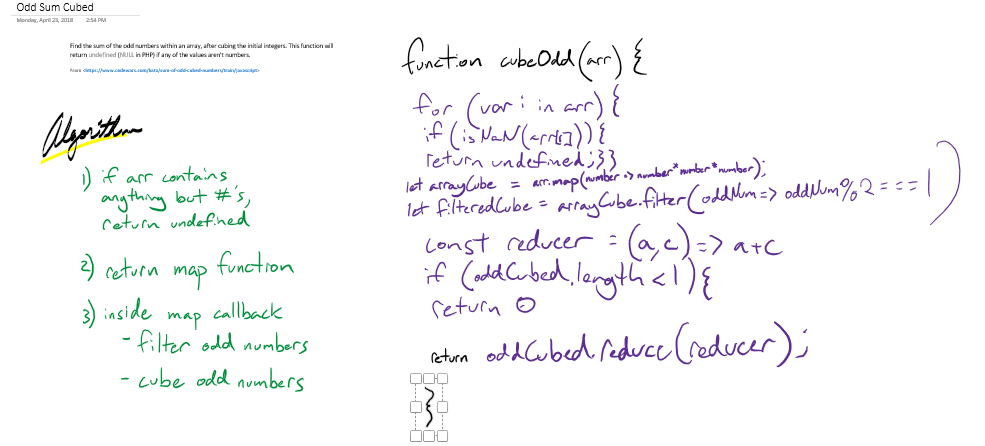 Odd Sum Cubed
Monday, April 23, 2018 2:54 PM
Find the sum of the odd numbers within an array, after cubing the initial integers. This function will
return undefined (NULL in PHP) if any of the values aren't numbers.
From <https://www.codewars.com/kata/sum-of-odd-cubed-numbers/train/javascript>
Algorithm
1) if arr contains
anything but #'s,
return undefined
2) return map function
3) inside map callback
- filter odd numbers
- cube odd numbers
function cubeOdd(arr) {
for (var i in arr) {
if (isNaN(arr[i])) {
return undefined;}}
let arrayCube = arr.map(number => number*number*number);
let filteredCube = arrayCube.filter(oddNum => oddNum%2===1)
const reducer = (a,c) => a+c
if (oddCubed.length < 1) {
return 0
return oddCubed.reduce(reducer);
}